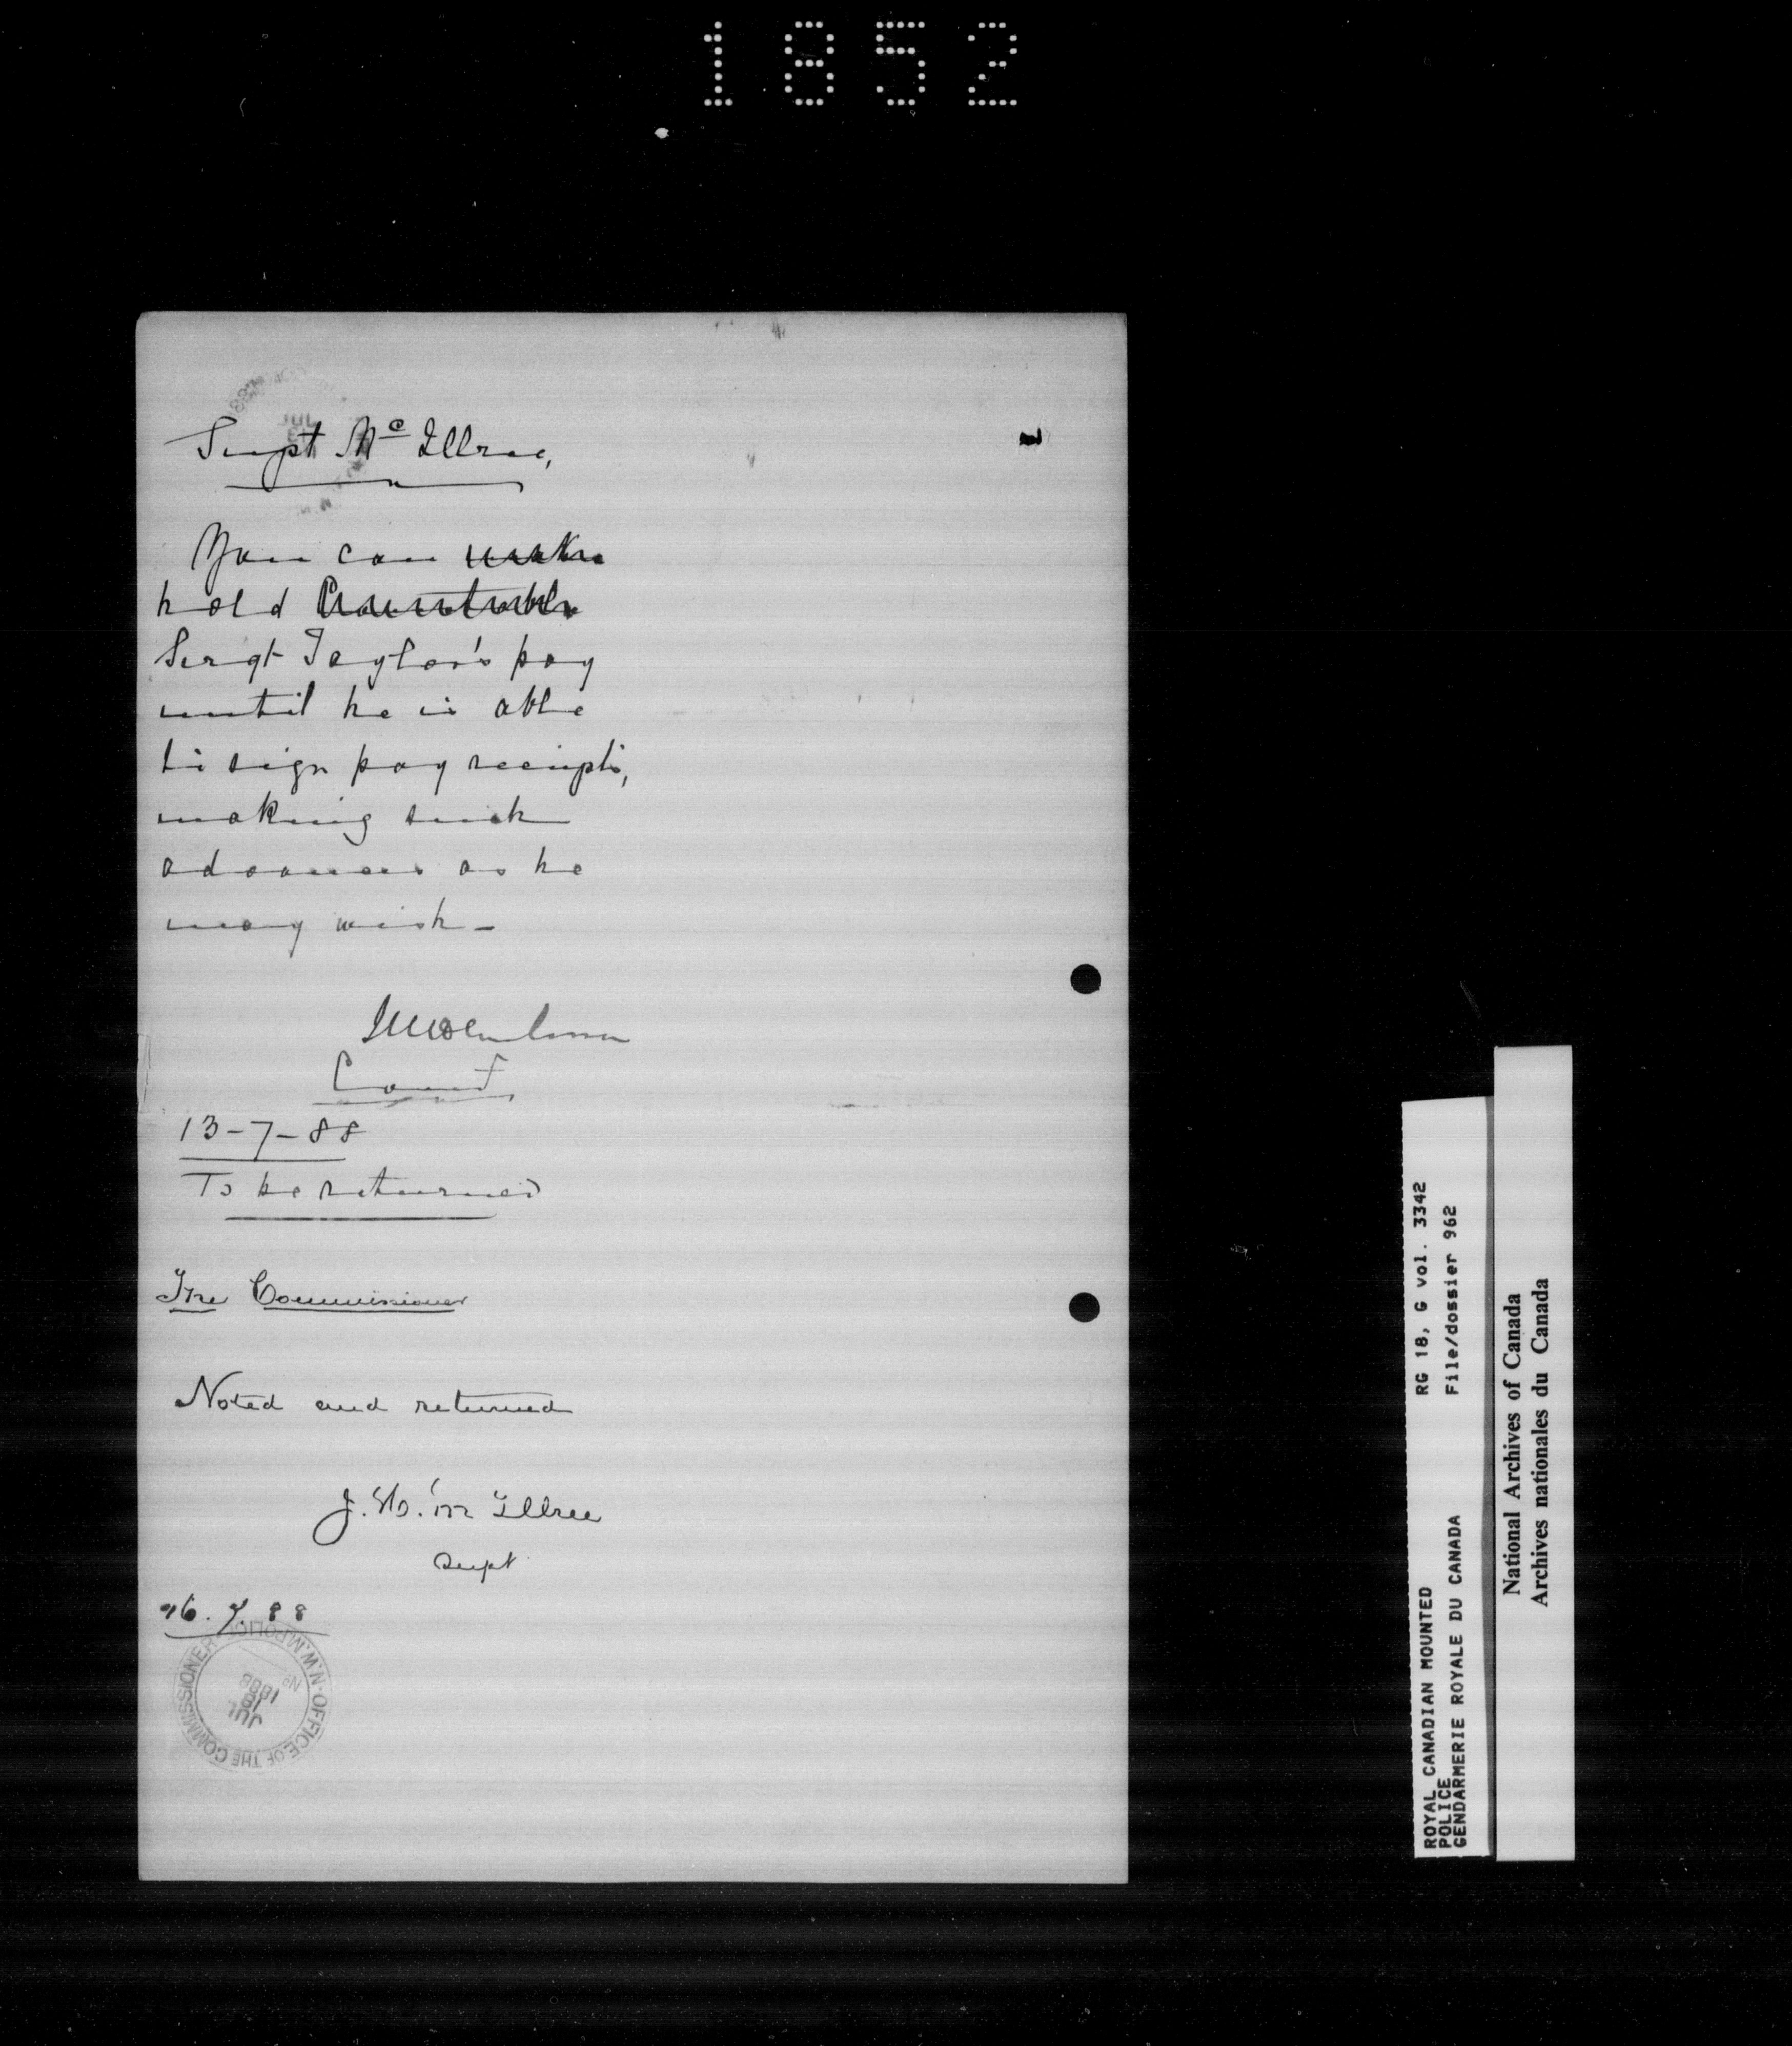 1852
Supt Mc Illree,
You can make
hold Constable
Sergt Taylor's pay
until he is able
to sign pay receipts,
making such
advances as he
may wish -
Comr
13-7-88
To be returned
The Commissioner
Noted and returned
J. H. Mc Illree
Supt
16. 7. 88
N.W.M. POLICE · OFFICE OF THE COMMISSIONER
JUL
18
1888
No
ROYAL CANADIAN MOUNTED
POLICE
GENDARMERIE ROYALE DU CANADA
RG 18, G vol. 3342
File/dossier 962
National Archives of Canada
Archives nationales du Canada